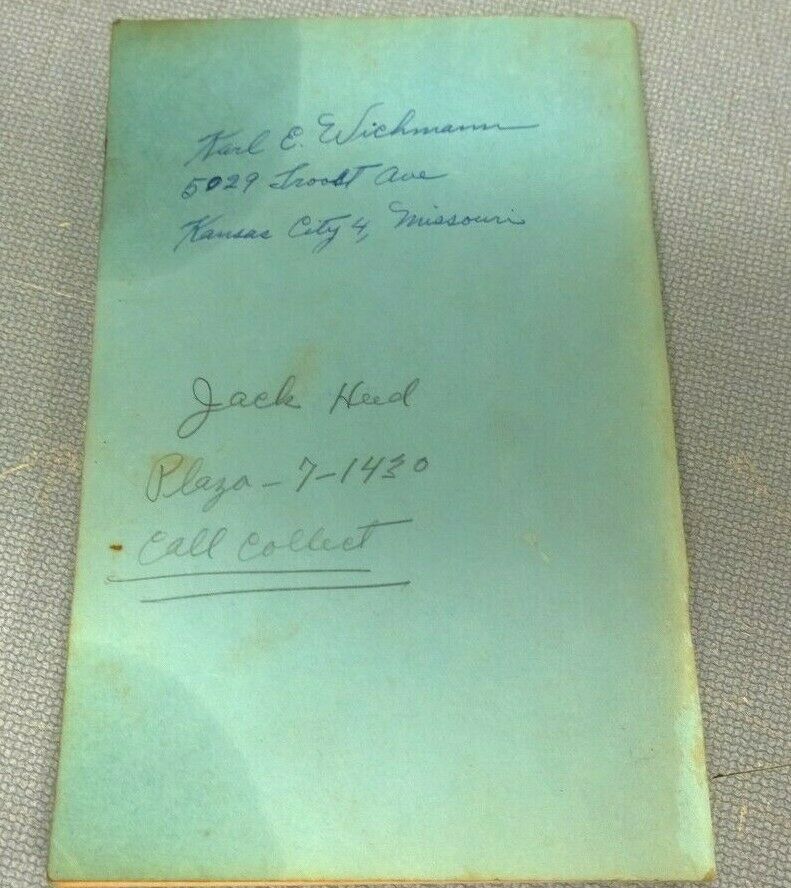 Karl E. Wichmann
5029 Troost Ave
Kansas City 4, Missouri
Jack
Plaza-7-1430
Call Collect